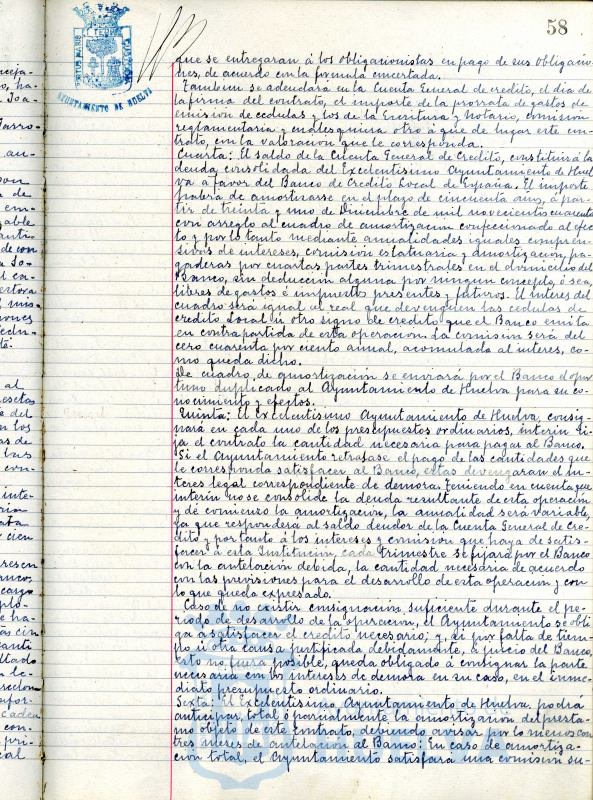 58
AYUNTAMIENTO DE HUELVA
que se entregaran á los obligacionistas en pago de sus obligacio-
nes, de acuerdo con la fórmula concertada.
Tambien se adeudará en la Cuenta General de credito, el dia de
la firma del contrato, el importe de la prorrata de gastos de
emision de cedulas y los de la Escritura y Notario, comision
reglamentaria y cualesquiera otro á que de lugar este con-
trato, con la valoracion que le corresponda.
Cuarta: El saldo de la Cuenta General de Credito, constituirá la
deuda consolidada del Excelentisimo Ayuntamiento de Huel
va a favor del Banco de Credito Local de España. El importe
habrá de amortizarse en el plazo de cincuenta años, á par-
tir de treinta y uno de Diciembre de mil novecientos cuarenta
con arreglo al cuadro de amortizacion confeccionado al efec
to y por lo tanto mediante anualidades iguales compren-
sivas de intereses, comision estatuaria y amortizacion, pa-
gaderas por cuartas partes trimestrales en el domicilio del
Banco, sin deducción alguna por ningun concepto, ó sea,
libres de gastos é impuestos presentes y futuros. El interes del
cuadro será igual al real que devenguen las cedulas de
credito Local ú otro signo de credito que el Banco emita
en contrapartida de esta operacion. La comision será del
cero cuarenta por ciento anual, acomulada al interes, co-
mo queda dicho.
De cuadro, de amortización se enviará por el Banco el opor
tuno duplicado al Ayuntamiento de Huelva para su co-
nocimiento y efectos.
Quinta: El Excelentisimo Ayuntamiento de Huelva, consig-
nará en cada uno de los presupuestos ordinarios, interin ri-
ja el contrato la cantidad necesaria para pagar al Banco.
Si el Ayuntamiento retrasase el pago de las cantidades que
le corresponda satisfacer al Banco, estas devengaran el in-
teres legal correspondiente de demora. Teniendo en cuenta que
interin no se consolide la deuda resultante de esta operación
y dé comienzo la amortización, la anualidad será variable,
ya que responderá al saldo deudor de la Cuenta General de Cre-
dito y por tanto á los intereses y comision que haya de satis-
facer á esta Institución, cada trimestre se fijará por el Banco
con la antelación debida, la cantidad necesaria de acuerdo
con las previsiones para el desarrollo de esta operacion y con
lo que queda expresado.
Caso de no existir consignación suficiente durante el pe-
riodo de desarrollo de la operacion, el Ayuntamiento se obli
ga a satisfacer el credito necesario; y, si por falta de tiem-
po ú otra causa justificada debidamente, a juicio del Banco,
esto no fuera posible, queda obligado á consignar la parte
necesaria con los intereses de demora en su caso, en el inme-
diato presupuesto ordinario.
Sexta: El Excelentisimo Ayuntamiento de Huelva, podrá
anticipar, total ó parcialmente, la amortización del presta-
mo objeto de este contrato, debiendo avisar por lo menos con
tres meses de antelacion al Banco. En caso de amortiza-
ción total, el Ayuntamiento satisfará una comisión su-